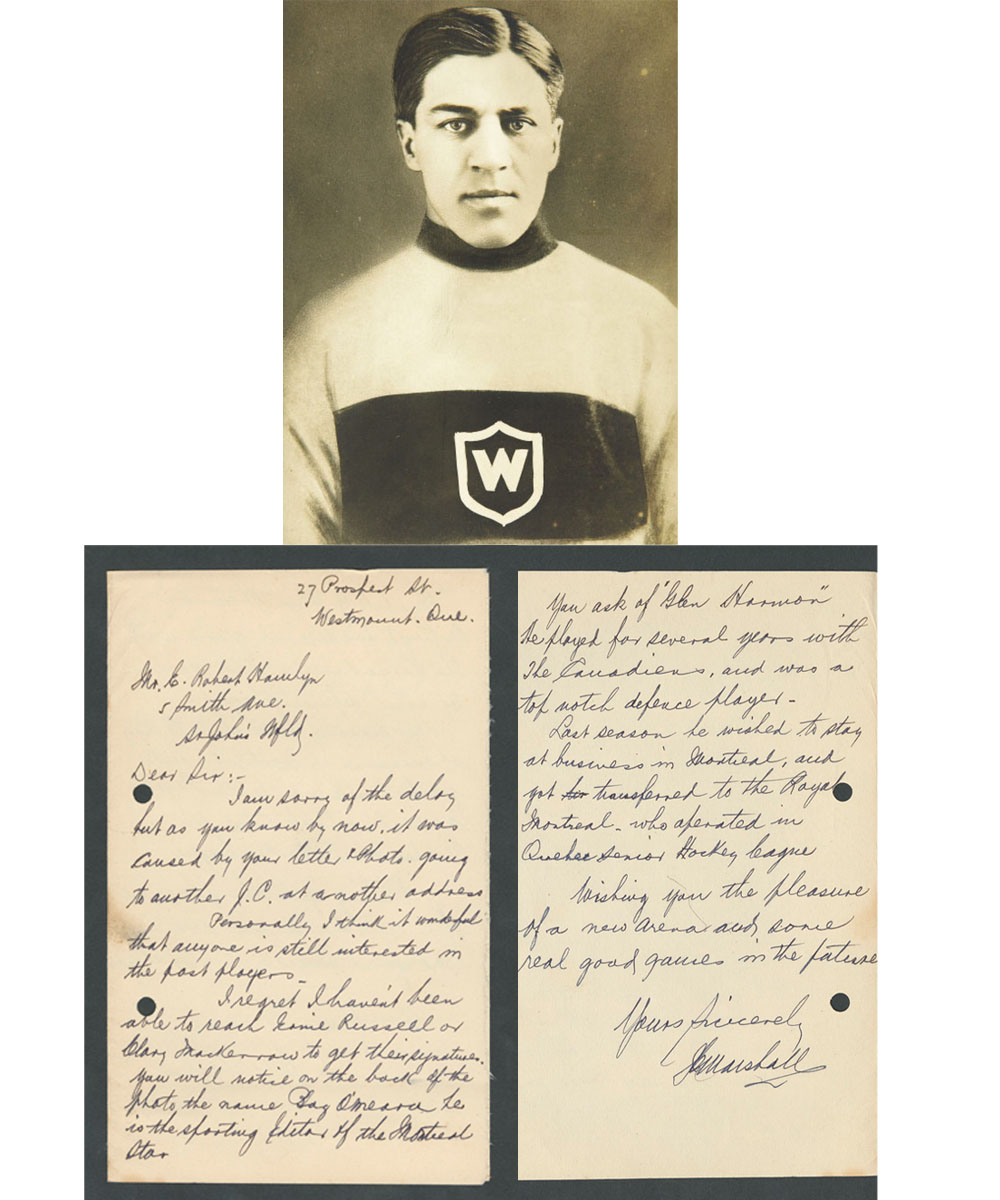 W
27 Prospect St.
Westmount. Que.
Mr. E. Robert Hamlyn
5 Smith Ave.
St John's Nfld.
Dear Sir:-
I am sorry of the delay
but as you know by now, it was
caused by your letter & Photo. going
to another J.C. at another address
Personally I think it wonderful
that anyone is still interested in
the past players -
I regret I haven't been
able to reach Ernie Russell or
Clary Mackerrow to get their signatures.
You will notice on the back of the
photo, the name Baz O'Meara he
is the sporting Editor of the Montreal
Star
You ask of "Glen Harmon"
He played for several years with
The Canadiens, and was a
top notch defence player -
Last season he wished to stay
at business in Montreal, and
got transferred to the Royal
Montreal - who operated in
Quebec Senior Hockey league
Wishing you the pleasure
of a new arena and some
real good games in the future
Yours Sincerely
JCMarshall